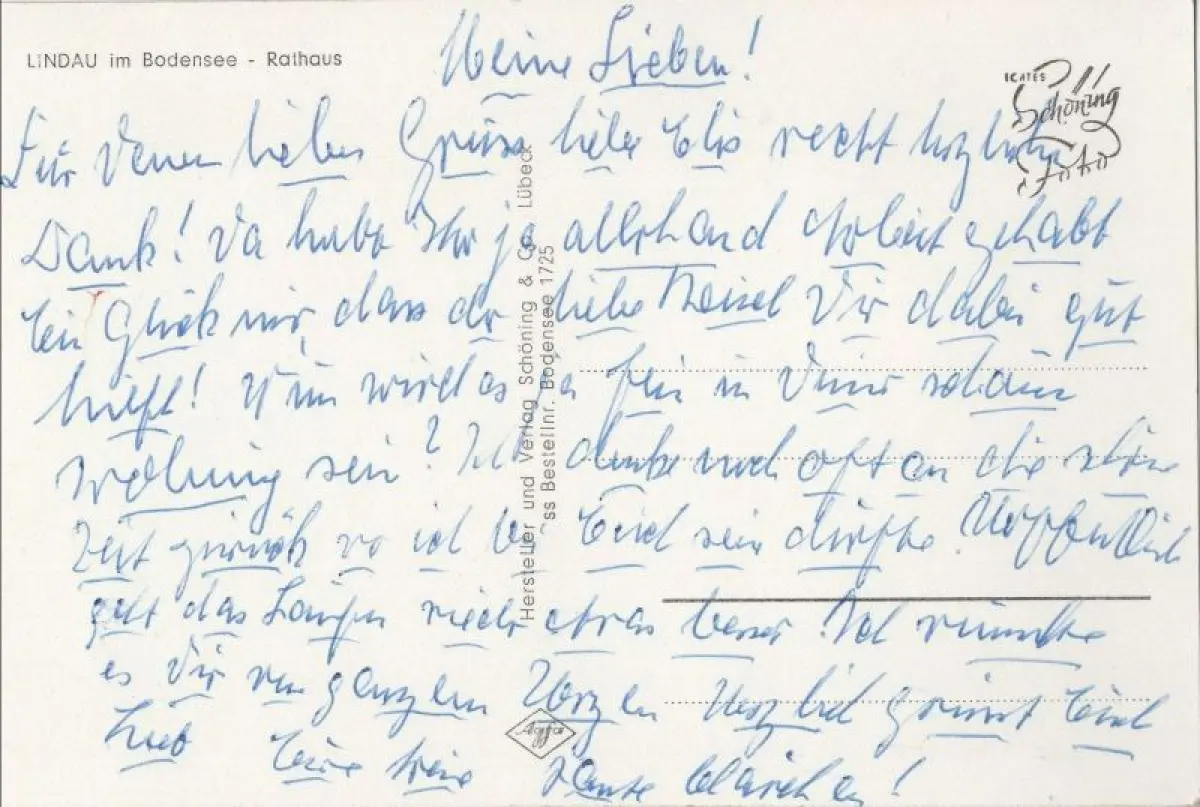 LINDAU im Bodensee - Rathaus
Meine Lieben!
Für Deinen lieben Gruss liebe Elis recht herzlichen
Dank! Da habt Ihr ja allerhand Arbeit gehabt
Ein Glück nur, dass der liebe Dir dabei gut
hilft! Nun wird es ja fein in Deiner schönen
Wohnung sein? Ich denke noch oft an die schöne
Zeit zurück wo ich bei Euch sein durfte. Hoffentlich
geht das Laufen wieder etwas besser. Ich wünsche
es Dir von ganzem Herzen. Herzlich grüsst Euch
lieb Eure treue Tante Klärchen!
ICATES
Schöning
Foto
Hersteller und Verlag Schöning & Co., Lübeck
Ss Bestellnr. Bodensee 1725
Agfa